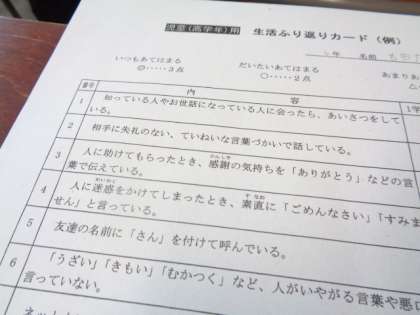 児童(高学年)用 生活ふり返りカード(例)
年 名前
いつもあてはまる だいたいあてはまる あまりあ
◎‥‥‥3点 ○‥‥‥2点
番号 内 容 1学
1 知っている人やお世話になっている人に会ったら、あいさつをして
いる。
2 相手に失礼のない、ていねいな言葉づかいで話している。
3 人に助けてもらったとき、感謝の気持ちを「ありがとう」などの言
葉で伝えている。
4 人に迷惑をかけてしまったとき、素直に「ごめんなさい」「すみま
せん」と言っている。
5 友達の名前に「さん」を付けて呼んでいる。
6 「うざい」「きもい」「むかつく」など、人がいやがる言葉や悪口
言っていない。